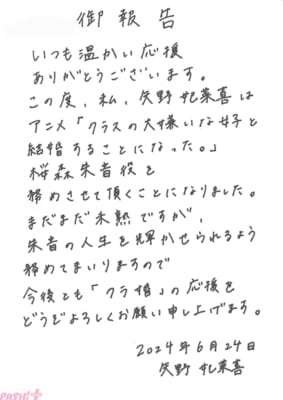 御報告
いつも温かい応援
ありがとうございます。
この度、私、矢野妃菜喜は
アニメ「クラスの大嫌いな女子と
結婚することになった。」
桜森朱音役を
務めさせて頂くことになりました。
まだまだ未熟ですが、
朱音の人生を輝かせられるよう
務めてまいりますので
今後とも「クラ婚」の応援を
どうぞよろしくお願い申し上げます。
2024年6月24日
矢野妃菜喜
PASH!+